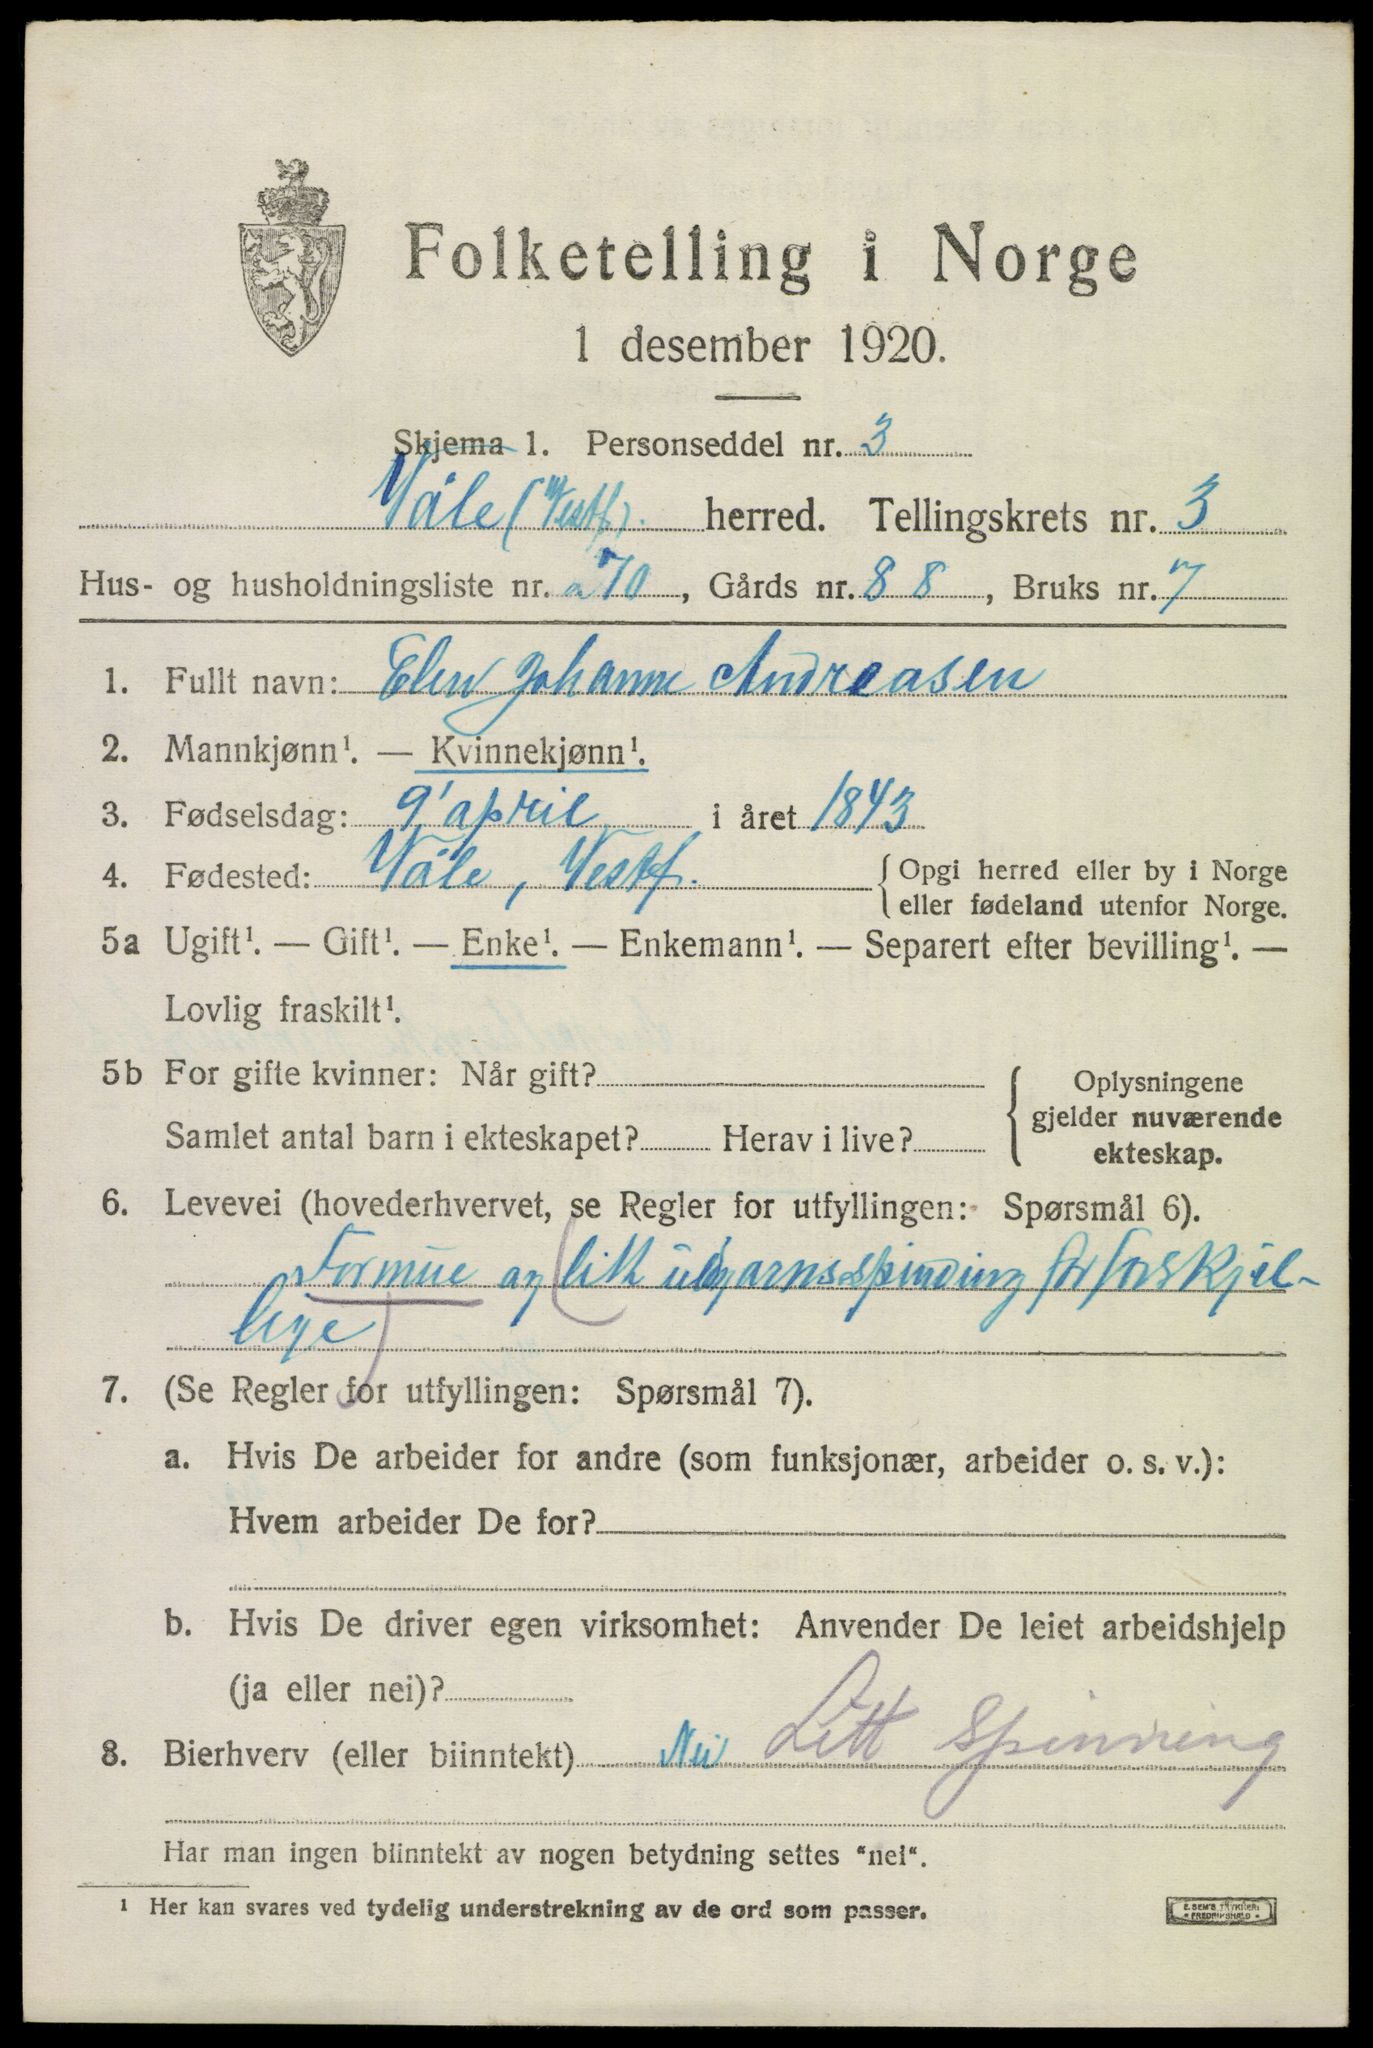 Folketelling i Norge
1 desember 1920.
Skjema 1. Personseddel nr. 3
Våle (Vestf). herred. Tellingskrets nr. 3
Hus- og husholdningsliste nr. 70, Gårds nr. 88, Bruks nr. 7
1. Fullt navn: Elen Johanne Andreasen
2. Mannkjønn¹. — Kvinnekjønn¹.
3. Fødselsdag: 9' april i året 1843
4. Fødested: Våle, Vestf. { Opgi herred eller by i Norge
eller fødeland utenfor Norge.
5a Ugift¹. — Gift¹. — Enke¹. — Enkemann¹. — Separert efter bevilling¹. —
Lovlig fraskilt¹.
5b For gifte kvinner: Når gift? { Oplysningene
gjelder nuværende
Samlet antal barn i ekteskapet? Herav i live?
ekteskap.
6. Levevei (hovederhvervet, se Regler for utfyllingen: Spørsmål 6).
Formue og (litt garnspinding for forskjel-
lige)
7. (Se Regler for utfyllingen: Spørsmål 7).
a. Hvis De arbeider for andre (som funksjonær, arbeider o. s. v.):
Hvem arbeider De for?
b. Hvis De driver egen virksomhet: Anvender De leiet arbeidshjelp
(ja eller nei)?
8. Bierhverv (eller biinntekt) Nei Litt spinning
Har man ingen biinntekt av nogen betydning settes "nei".
¹ Her kan svares ved tydelig understrekning av de ord som passer.
E. SEM'S TRYKKERI
FREDRIKSHALD